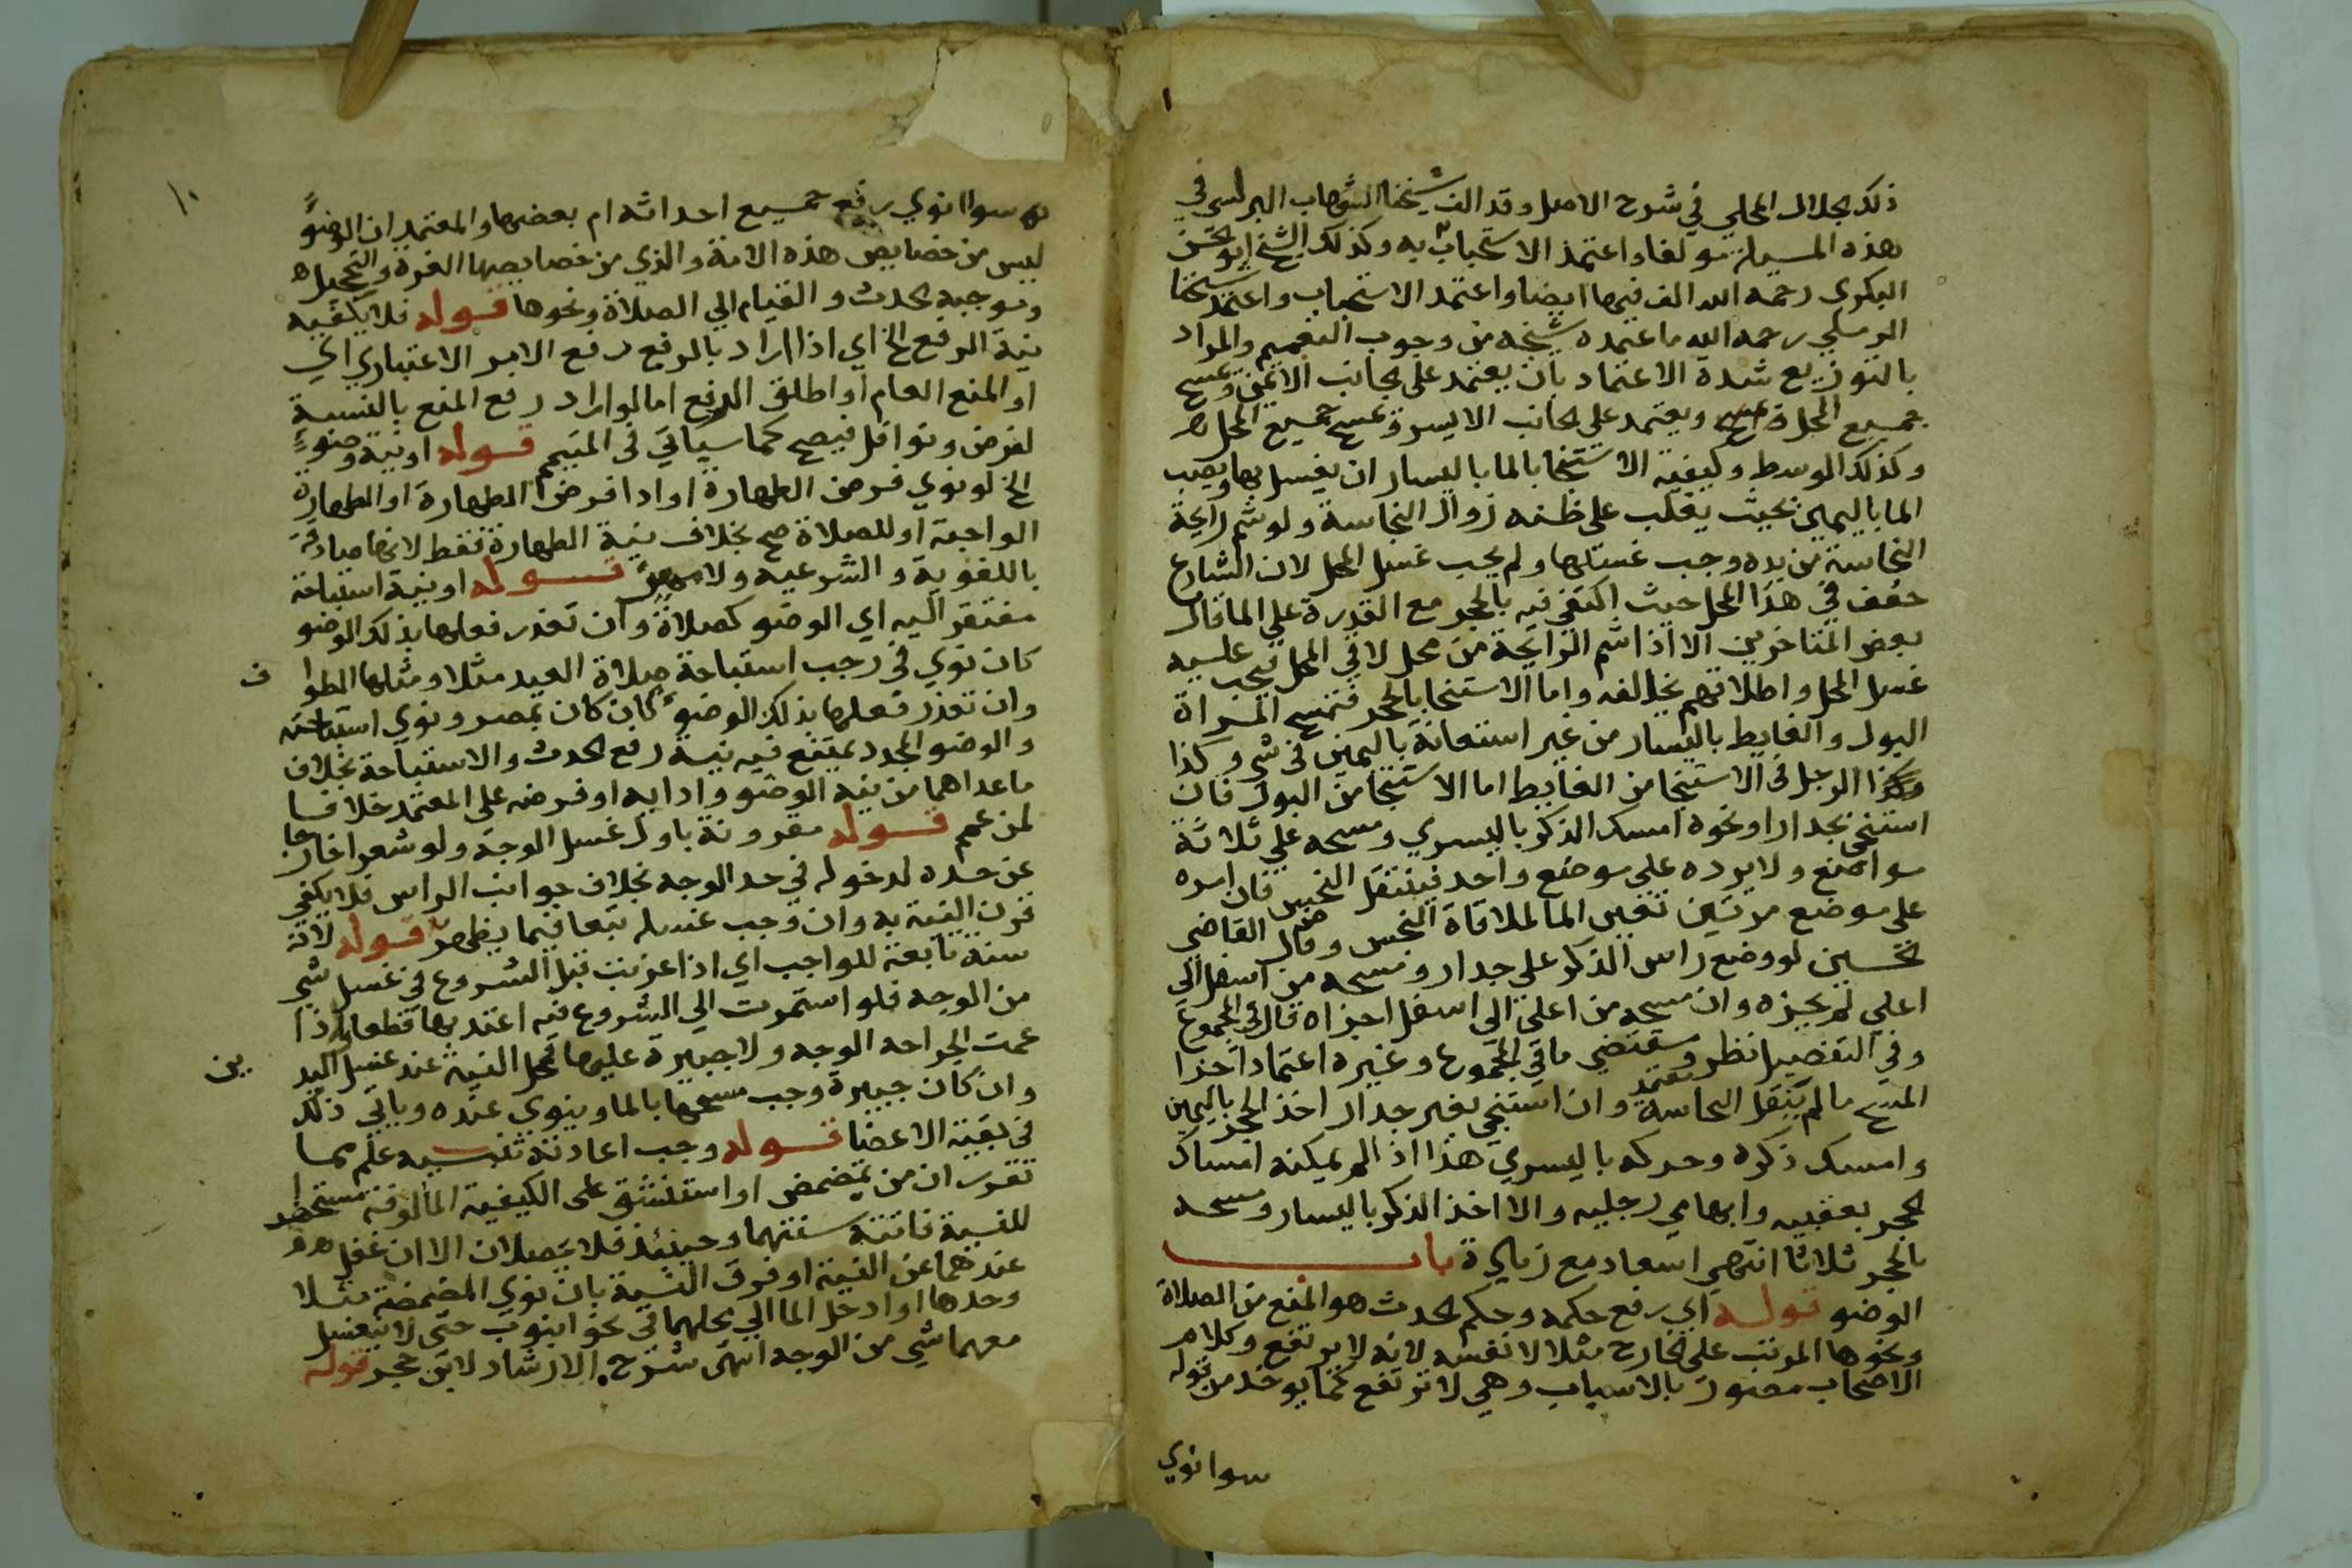 ذلك الجلال المحلي في شرح الاصل وقد الف شيخنا الشهاب البرلسي في
هذه المسيلة مولفا واعتمد الاستحباب به وكذلك الشيخ ابو الحسن
البكري رحمه الله الف فيها ايضا واعتمد الاستحباب واعتمد شيخنا
الرملي رحمه الله ما اعتمده شيخه من وجوب التعميم والمراد
بالتوزيع شدة الاعتماد بان يعتمد على الجانب الايمن ويمسح
جميع المحل ويعتمد على الجانب الايسر ويمسح جميع المحل
وكذلك الوسط وكيفية الاستنجا بالما باليسار ان يغسل بها ويصب
الما باليمين بحيث يغلب على ظنه زوال النجاسة ولو شم رايحة
النجاسة من يده وجب غسلها ولم يجب غسل المحل لان الشارع
خفف في هذا المحل حيث اكتفي فيه بالحجر مع القدرة على الما قال
بعض المتاخرين الا اذا شم الرايحة من محل لاقي المحل فيجب عليه
غسل المحل واطلاقهم يخالفه واما الاستنجا بالحجر فتمسح المراة
البول والغايط باليسار من غير استعانة باليمين في شي وكذا
الرجل في الاستنجا من الغايط اما الاستنجا من البول فان
استنجي بجدار او نحوه امسك الذكر باليسري ومسحه علي ثلاثة
مواضع ولا يرده على موضع واحد فينتقل النجس فان امره
على موضع مرتين تعين الما لملاقاة النجس وقال القاضي
حسين لو وضع راس الذكر على جدار ومسحه من اسفل الي
اعلي لم يجزه وان مسحه من اعلي الى اسفل اجزاه قال في المجموع
وفي التفصيل نظر ومقتضي ما في المجموع وغيره اعتماد اجزا
المسح ما لم ينتقل النجاسة وان استنجي بغير جدار اخذ الحجر باليمين
وامسك ذكره وحركه باليسري هذا اذا لم يمكنه امساك
الحجر بعقبيه وابهامي رجليه والا اخذ الذكر باليسار ومسحه
بالحجر ثلاثا انتهي اسعاد مع زيادة باب
الوضو قوله اي رفع حكمه وحكم الحدث هو المنع من الصلاة
ونحوها المرتب على الخارج مثلا لا نفسه لانه لا يرتفع وكلام
الاصحاب مصور بالاسباب وهي لا ترتفع كما يوخذ من قوله
سوا نوي
١٠
سوا نوي رفع جميع احداثه ام بعضها والمعتمد ان الوضو
ليس من خصايص هذه الامة والذي من خصايصها الغرة والتحجيل
وموجبه الحدث والقيام الي الصلاة ونحوها قوله فلا يكفيه
نية الرفع الخ اي اذا اراد بالرفع رفع الامر الاعتباري اي
او المنع العام او اطلق الرفع اما لو اراد رفع المنع بالنسبة
لفرض ونوافل فيصح كما سياتي في التيمم قوله او نية وضوء
الخ لو نوي فرض الطهارة او ادا فرض الطهارة او الطهارة
الواجبة او للصلاة صح بخلاف نية الطهارة فقط لانها صادقة
باللغوية والشرعية ولا قوله او نية استباحة
مفتقر اليه اي الوضو كصلاة وان تعذر فعلها بذلك الوضو
كان نوي في رجب استباحة صلاة العيد مثلا ومثلها الطواف
وان تعذر فعلها بذلك الوضو كان كان بمصر ونوي استباحته
والوضو المجدد يمتنع فيه نية رفع الحدث والاستباحة بخلاف
ما عداهما من نية الوضو وادايه او فرضه على المعتمد خلافا
لمن عمم قوله مقرونة باول غسل الوجه ولو شعرا خارجا
عن حده لدخوله في حد الوجه بخلاف جوانب الراس فلا يكفي
قرن النية به وان وجب غسله تبعا فيما يظهر قوله لانه
سنة تابعة للواجب اي اذا عزبت قبل الشروع في غسل شي
من الوجه فلو استمرت الي الشروع فيه اعتد بها قطعا واذا
عمت الجراحه الوجه ولا جبيرة عليها فمحل النية عند غسل اليدين
وان كان جبيرة وجب مسحها بالما وينوي عنده وياتي ذلك
في بقية الاعضا قوله وجب اعادته تنبيه علم مما
تقرر ان من تمضمض او استنشق على الكيفية المالوفة مستحضرا
للنية فاتته سنتهما وحينئذ فلا يحصلان الا ان غفل
عندهما عن النية او فرق النية بان نوي المضمضة مثلا
وحدها او ادخل الما الي محلهما في نحو انبوب حتى لا ينغسل
معهما شي من الوجه انتهى شرح الارشاد لابن حجر قوله